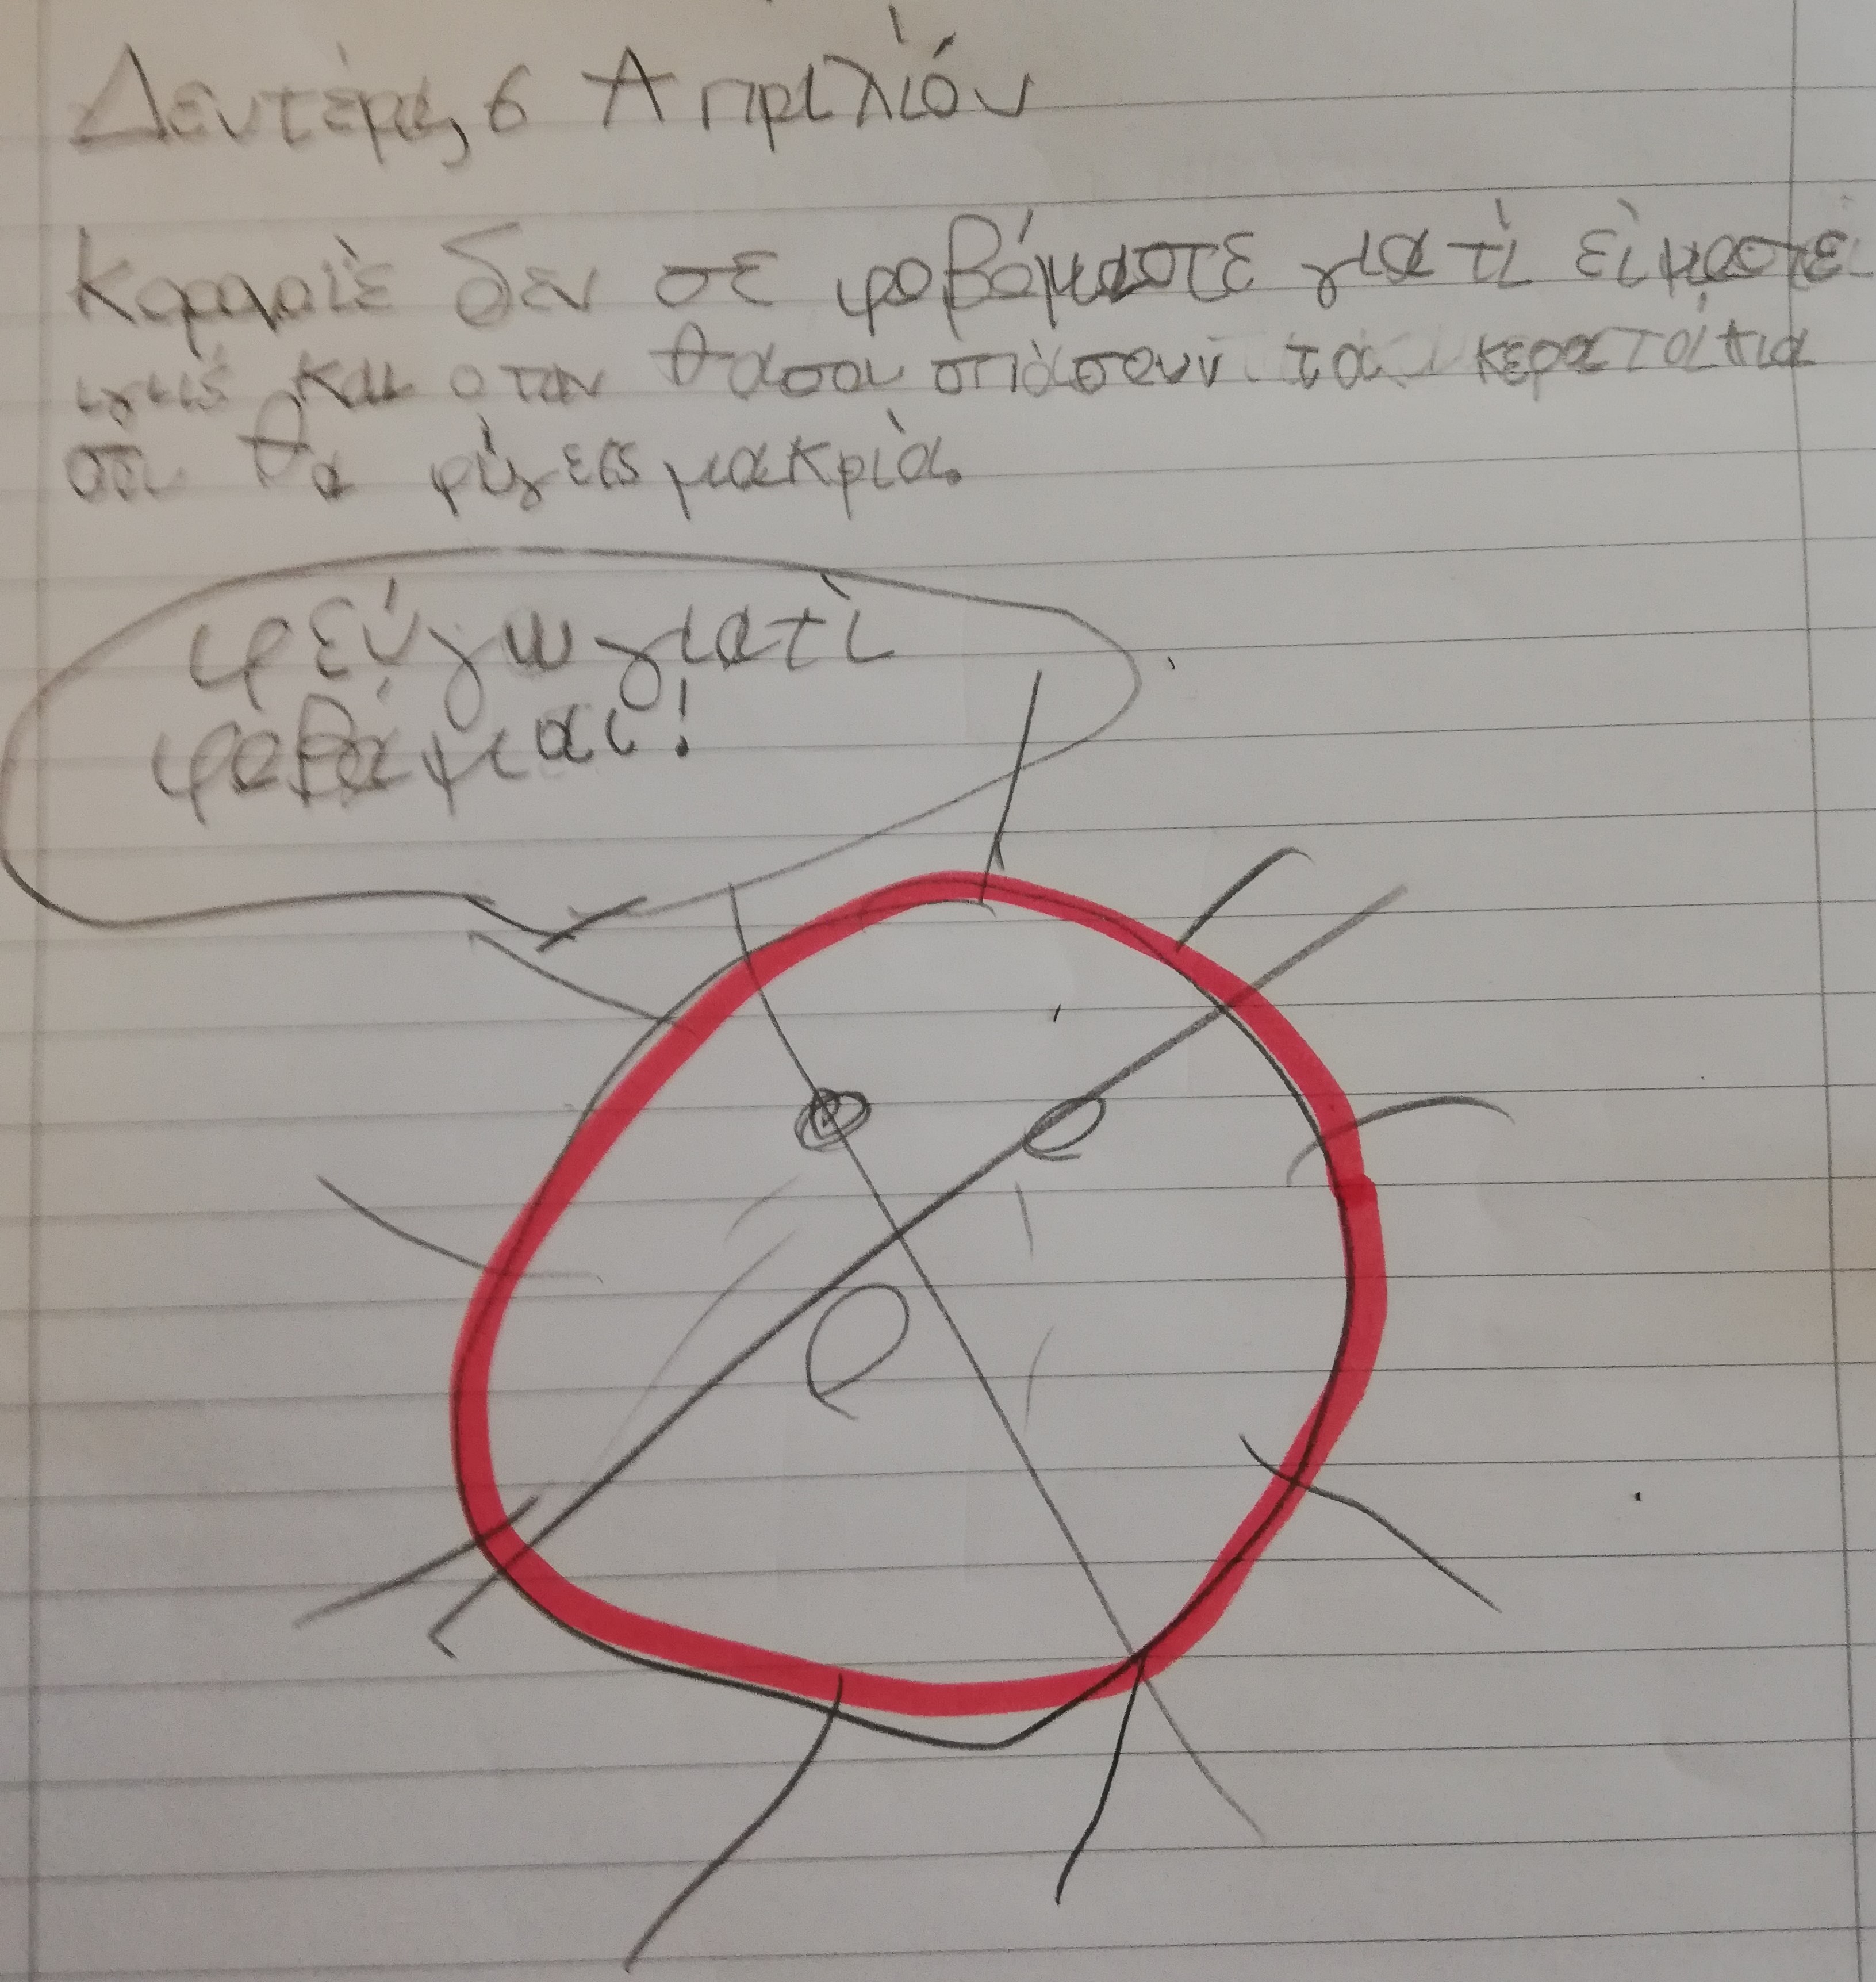 Δευτέρα, 6 Απριλιόυ
δεν σε φοβόμαστε γιατί είμαστε
και οταν θασου σπάσουν τα κερατάκια
σου θα φύγεις μακριά.
φεύγω γιατί
φοβάμαι!